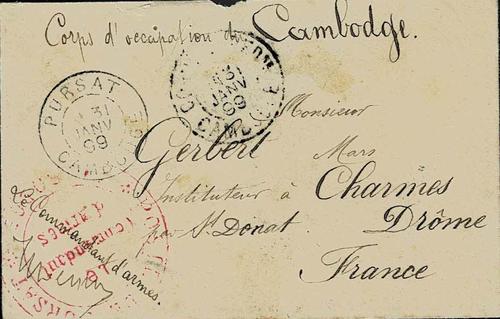 Corps d'occupation du Cambodge.
PURSAT
31
JANV
89
CAMBODGE
JANV
89
Monsieur
Gerbert Mars
Instituteur à Charmes
par St Donat Drôme
France
Le Commandant d'armes.
Le
Commandant
d'armes